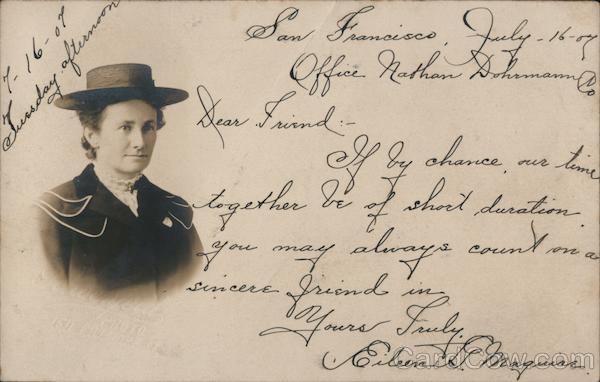 7-16-07
Tuesday afternoon
San Francisco, July-16-07
Office Nathan Dohrmann Co
Dear Friend:-
If by chance, our time
together be of short duration
you may always count on a
sincere friend in
Yours Truly,
Eileen Maguire.
CardCow.com